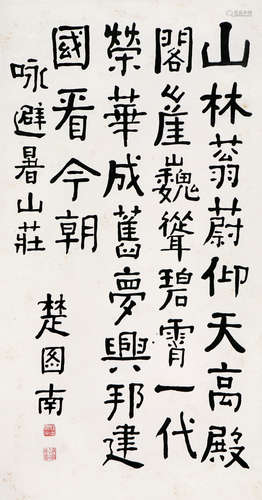 山林蓊蔚仰天高殿
閣崔巍聳碧霄一代
榮華成舊夢興邦建
國看今朝
咏避暑山莊
楚图南